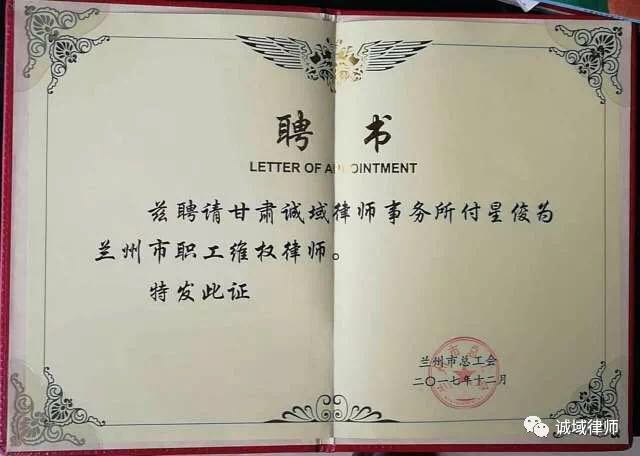 聘 书
LETTER OF APPOINTMENT
兹聘请甘肃诚域律师事务所付星俊为
兰州市职工维权律师。
特发此证
兰州市总工会
二〇一七年十二月
诚域律师